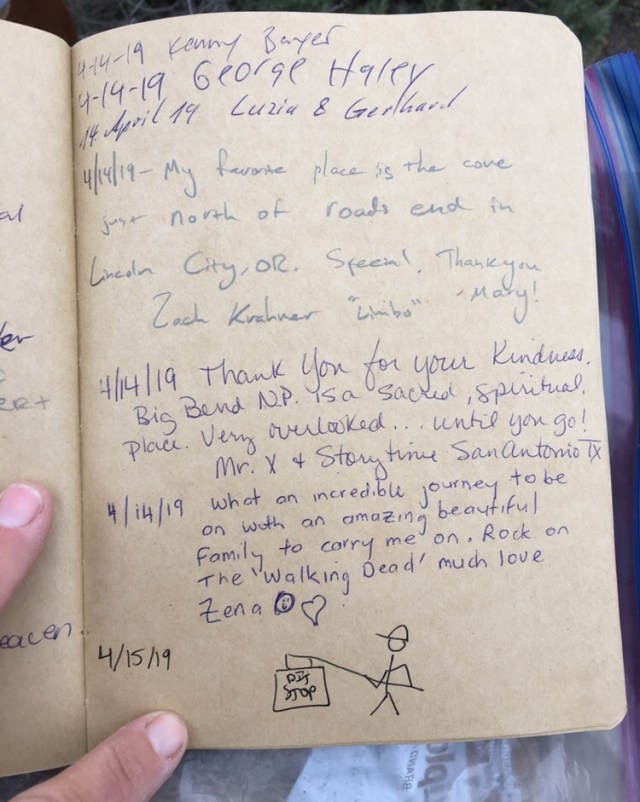 4-14-19 Kenny Bayer
4-14-19 George Haley
14. April 19 Luzia & Gerhard
4/14/19 - My favorite place is the cove
just north of roads end in
Lincoln City, OR. Special. Thank you
Zach Krahner "Limbo" - Mary!
4/14/19 Thank You for your Kindness.
Big Bend N.P. is a sacred, spiritual
place. Very overlooked... until you go!
Mr. X & Storytime San Antonio TX
4/14/19 what an incredible journey to be
on with an amazing beautiful
family to carry me on. Rock on
The 'Walking Dead' much love
Zena
eaven
4/15/19
PIT
STOP